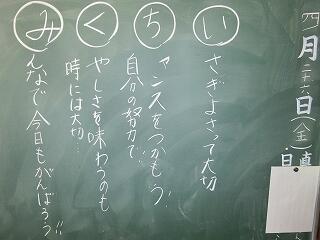 四月二十六日(金)
日直
い さぎよさって大切
ち ャンスをつかもう
自分の努力で!!
く やしさを味わうのも
時には大切…
み んなで今日もがんばろう!!